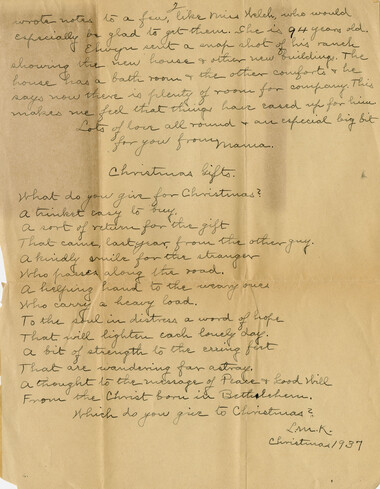 2
wrote notes to a few, like Miss Welch, who would
especially be glad to get them. She is 94 years old.
Emryn sent a snap shot of his ranch
showing the new house & other new buildings. The
house has a bath room & the other comforts & he
says now there is plenty of room for company. This
makes me feel that things have eased up for him
Lots of love all round & an especial big bit
for you from Mama.
Christmas Gifts.
What do you give for Christmas?
A trinket easy to buy,
A sort of return for the gift
That came, last year, from the other guy.
A kindly smile for the stranger
Who passes along the road.
A helping hand to the weary ones
Who carry a heavy load.
To the soul in distress a word of hope
That will lighten each lonely day.
A bit of strength to the erring feet
That are wandering far astray.
A thought to the message of Peace & Good Will
From the Christ born in Bethlehem.
Which do you give to Christmas?
L.M.K.
Christmas 1937